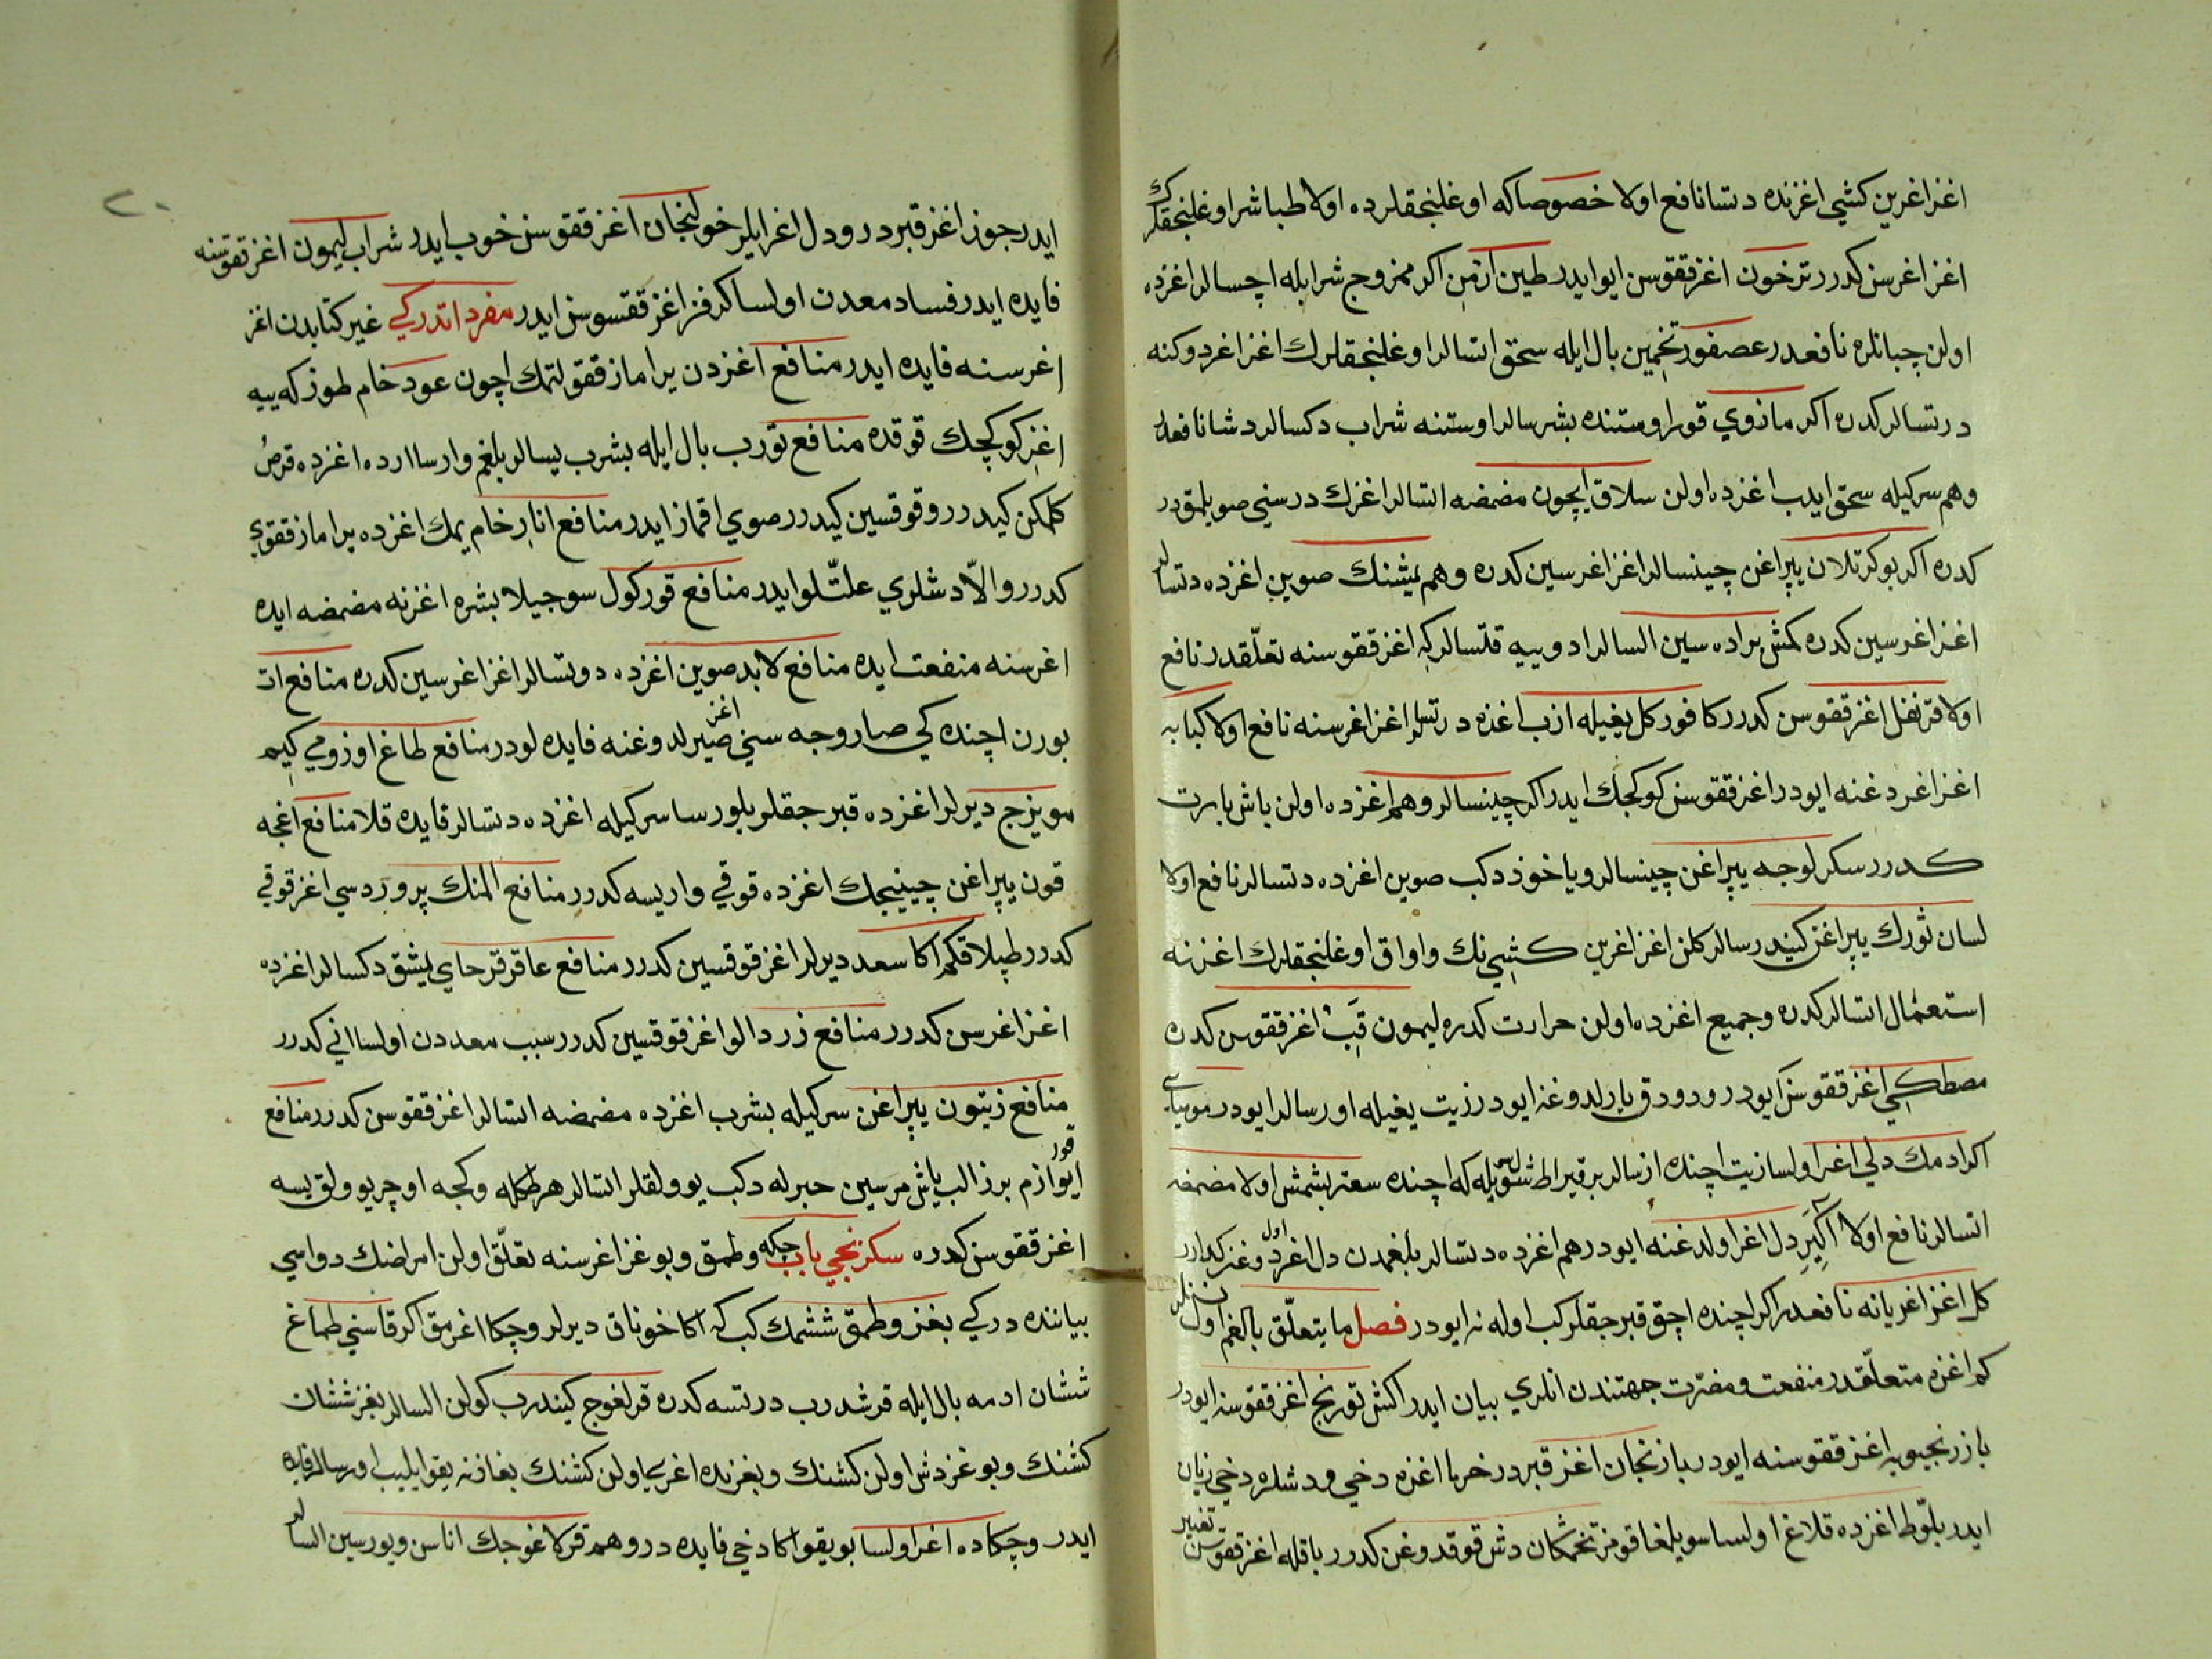 اغز اغرين كشي اغزنده دتسا نافع اولا خصوصاكه اوغلنجقلرده اولا طباشير اوغلنجقلرك
اغز اغرسن كدرر ترخون اغز ققوسن ايو ايدر طين ارمن اكر ممزوج شرابله اچسالر اغزده
اولن چبانلره نافعدر عصفور تخمين بال ايله سحق اتسالر اوغلنجقلرك اغز اغردوكنه
درتسالر كدره اكر مازوي قورا وستنده بشرسالر اوستنه شراب دكسالر دشا نافعدر
وهم سركيله سحق ايدب اغزده اولن سلاق ايچون مضمضه اتسالر اغزك درسني صويلمقدر
كدره اكر بوكرتلان يپراغن چينسالر اغز اغرسين كدره وهم يشنك صوين اغزده دتسالر
اغز اغرسين كدره كمش براده سين السالر ادوييه قتسالركه اغز ققوسنه تعلقدر نافع
اولا قرنفل اغز ققوسن كدرر كافور كل يغيله ازب اغزه درتسلر اغز اغرسنه نافع اولا كبابه
اغز اغردغنه ايودر اغز ققوسن كوكجك ايدر اكر چينسالر وهم اغزده اولن باش بابرت
كدرر سكرلوجه يپراغن چينسالر ويا خوذ دكب صوين اغزده دتسالر نافع اولا
لسان ثورك يپراغن كيندرسالر كلن اغز اغرين كشي نك واواق اوغلنجقلرك اغزنه
استعمال اتسالر كدره وجميع اغزده اولن حرارت كدره ليمون قبى اغز ققوسن كدره
مصطكي اغز ققوسن ايودر ودودق يارلدوغنه ايودر زيت يغيله اورسالر ايودر موميايي
اكر ادمك دلي اغر اولسا زيت اچنده ازسالر بر قيراط شول صويله كه اچنده سعتر بشمش اولا مضمضه
اتسالر نافع اولا اكير دل اغر اولدغنه ايودر هم اغزده دتسالر بلغمدن دل اغردوغن كدرر
كل اغز اغريانه نافعدر اكر اچنده اچق قبرجقلر كب اوله نه ايودر فصل ما يتعلق بالفم اول نسنلر
كم اغزه متعلقدر منفعت ومضرت جهتندن انلري بيان ايدر اكش تورنج اغز ققوسنه ايودر
بازرنجبويه اغز ققوسنه ايودر بازنجان اغز قبردر خرما اغزه دخي ودشلره دخي زيان
ايدر بلوط اغزده قلاغ اولسا سويلغا قومز تخمكان دش قوقدوغن كدرر باقله اغز ققوسن تغيير
ايدر جوز اغز قبردر ودل اغر ايلر خولنجان اغز ققوسن خوب ايدر شراب ليمون اغز ققوسنه
فايده ايدر فساد معدن اولسا كرفز اغز ققسوسن ايدر مفرداتدركي غير كتابدن اغز
اغرسنه فايده ايدر منافع اغزدن يراماز ققو لتمك اچون عود خام طوزكه ييه
اغز كوكچك قوقده منافع تورب بال ايله بشرب يسالر بلغم وارسا ارده اغزده قرص
كلمكن كيدرر وقوقسين كيدرر صوي اقماز ايدر منافع انار خام يمك اغزده يراماز ققوي
كدرر والا دشلري علتلو ايدر منافع قور كول سوجيلا بشره اغزنه مضمضه ايده
اغرسنه منفعت ايده منافع لابد صوين اغزده دوتسالر اغز اغرسين كدره منافع ات
بورن اچنده كي صاروجه سني اغز صيرلدوغنه فايده لودر منافع طاغ اوزومي كيم
مويزج ديرلر اغزده قبرجقلر بلورسا سركيله اغزده دتسالر فايده قلا منافع اغجه
قون يپراغن چينيجك اغزده قوقي واريسه كدرر منافع المنك پرورد سي اغز قوقي
كدرر طپلاقكم اكا سعد ديرلر اغز قوقسين كدرر منافع عاقرقرحاي يشق دكسالر اغزده
اغز اغرسن كدرر منافع زردالو اغز قوقسين كدرر سبب معددن اولسا اني كدرر
منافع زيتون يپراغن سركيله بشرب اغزده مضمضه اتسالر اغز ققوسن كدرر منافع
ايو قور ازم برز الب ياش مرسين حبرله دكب يوولقلر اتسالر هر طكله وكجه اوچر يوولق يسه
اغز ققوسن كدره سكزنجي باب چكه وطمق وبوغز اغرسنه تعلق اولن امراضك دواسي
بياننده دركي بغز وطمق ششمك كب كه اكا خوناق ديرلر وچكا اغرمق اكر قاسني طماغ
ششان ادمه بال ايله قرشدرب درتسه كدره قرلغوج كيندرب كولن السالر بغز ششان
كشنك وبوغز دش اولن كشنك وبغزنده اغريي اولن كشنك بغازنه يقو ايليب اورسالر فايده
ايدر وچكاده اغر اولسا بو يقو اكا دخي فايده در وهم قرلاغوجك اناسن ويورسين السالر